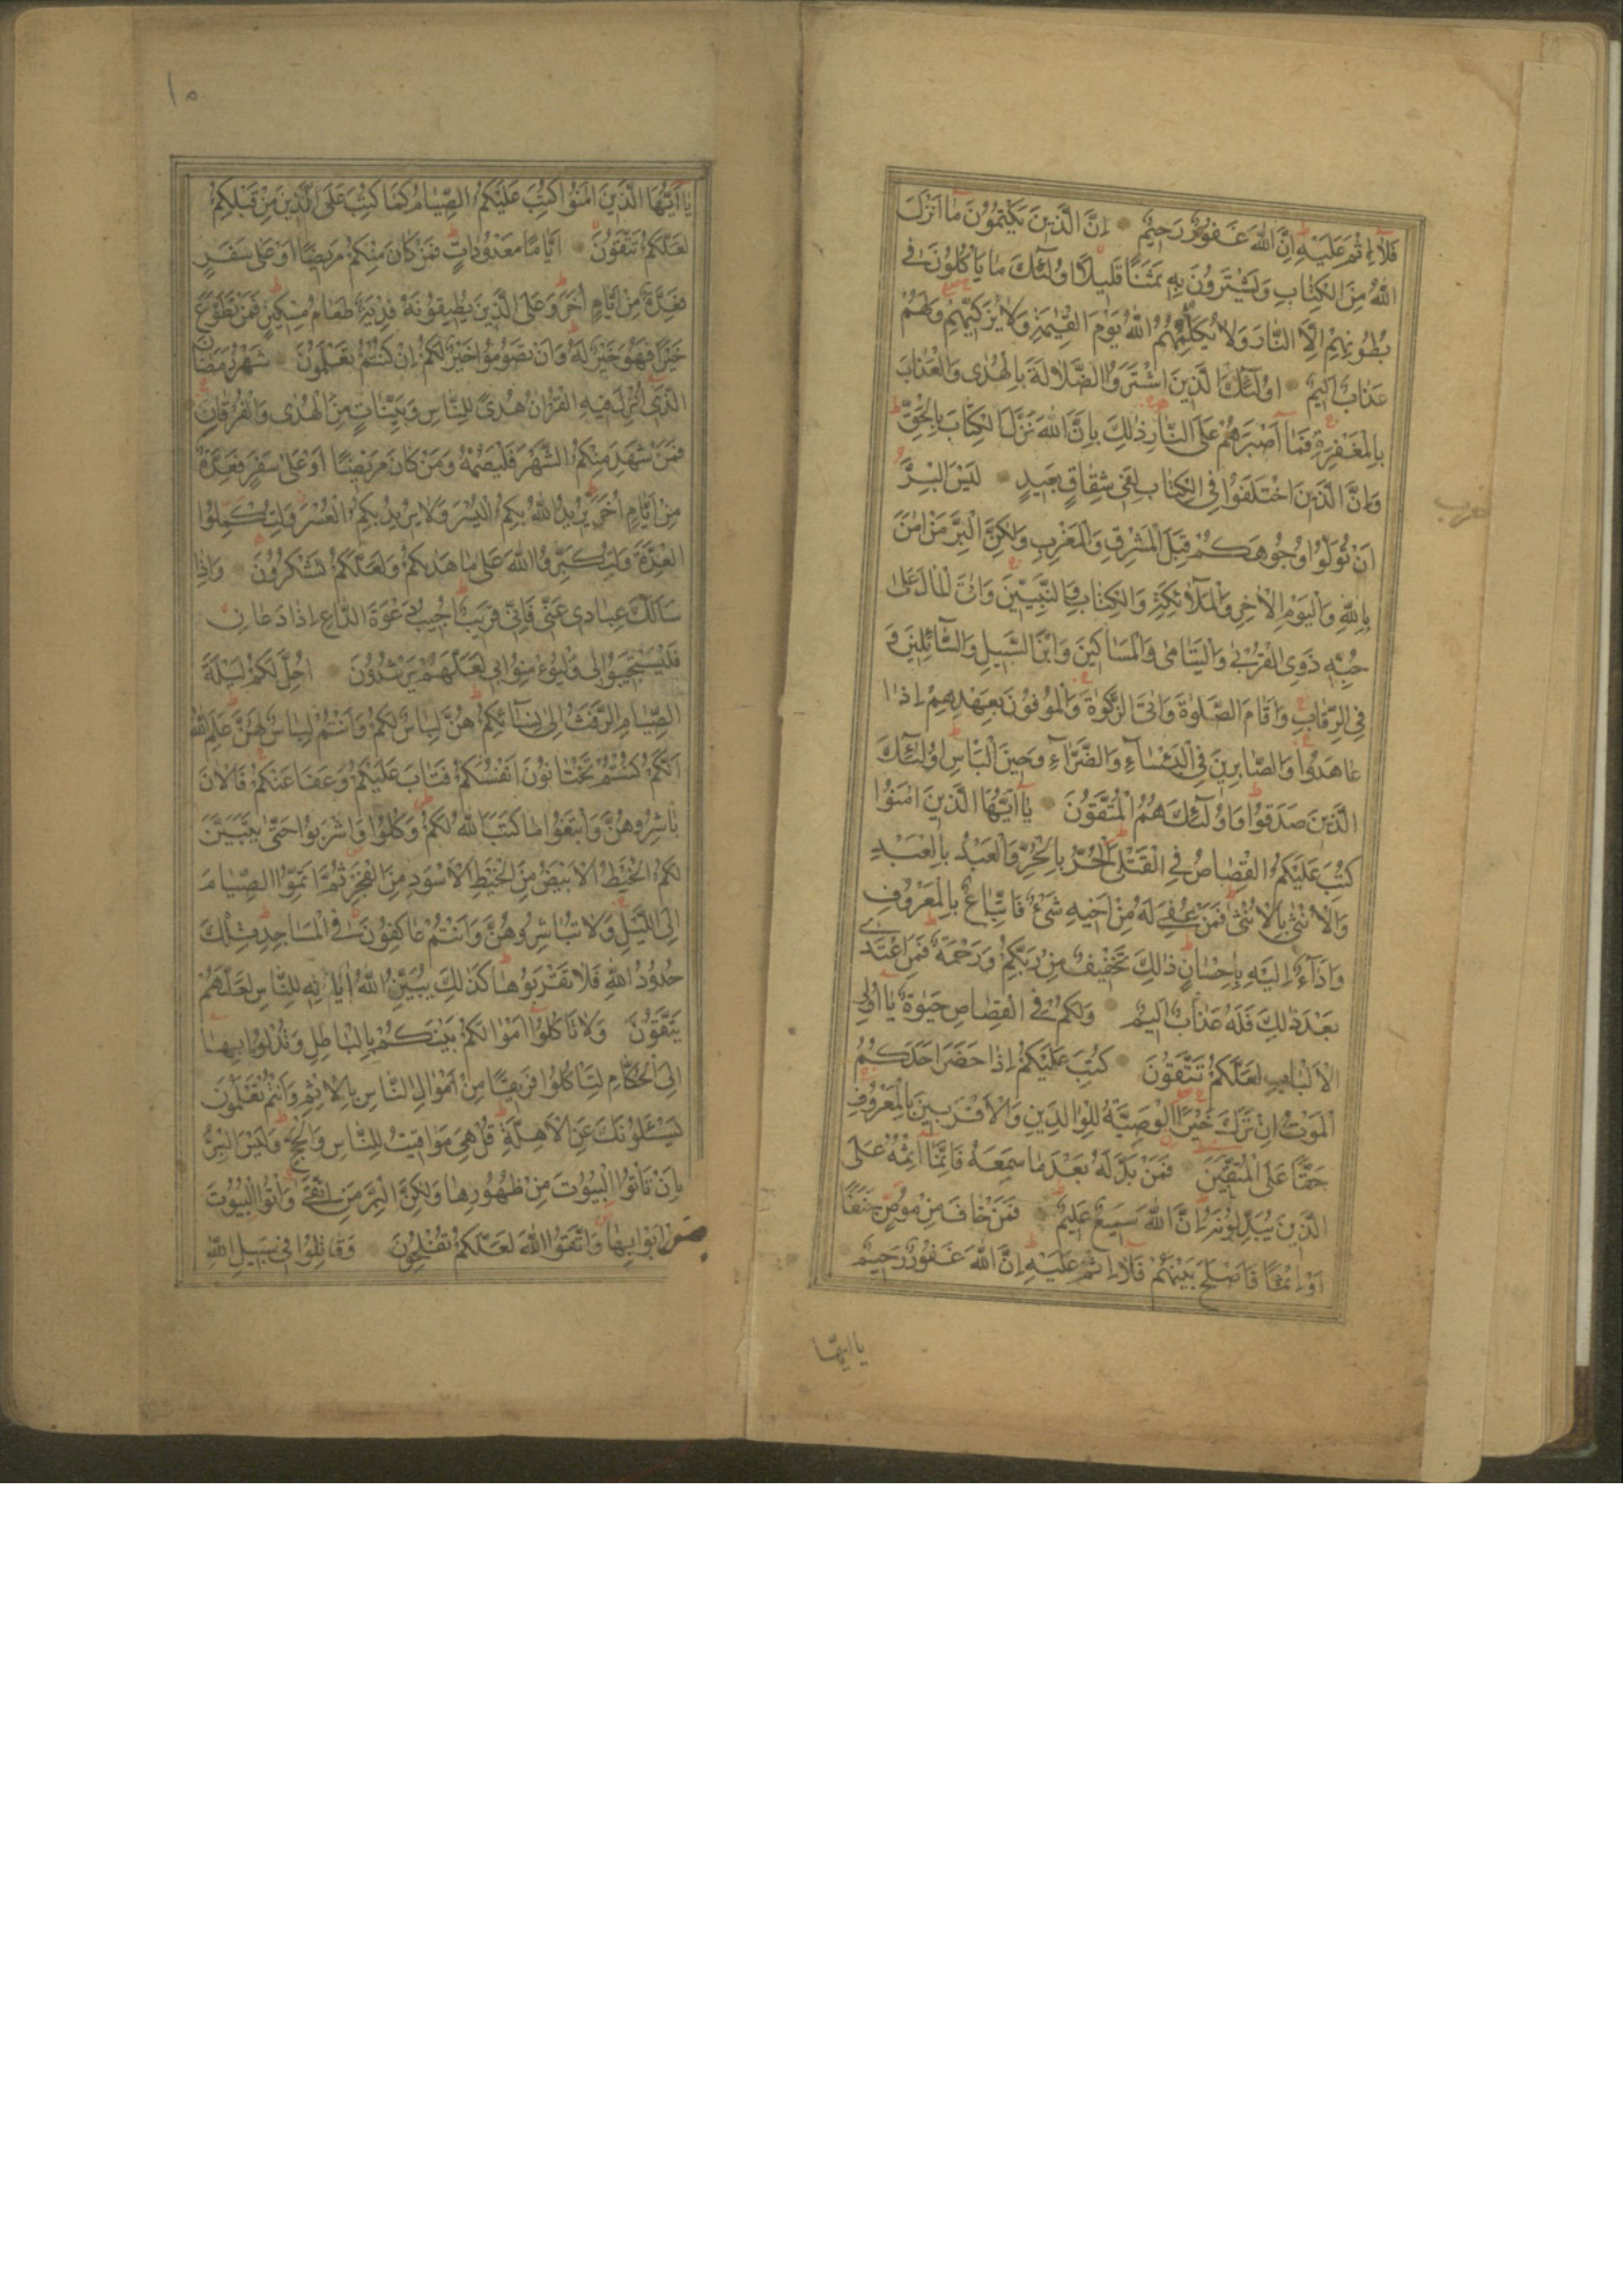 فَلَا اِثْمَ عَلَيْهِ اِنَّ اللهَ غَفُورٌ رَحِيمٌ اِنَّ الَّذِينَ يَكْتُمُونَ مَا اَنْزَلَ
اللهُ مِنَ الْكِتَابِ وَيَشْتَرُونَ بِهِ ثَمَنًا قَلِيلًا اُولٰئِكَ مَا يَأْكُلُونَ فِي
بُطُونِهِمْ اِلَّا النَّارَ وَلَا يُكَلِّمُهُمُ اللهُ يَوْمَ الْقِيٰمَةِ وَلَا يُزَكِّيهِمْ وَلَهُمْ
عَذَابٌ اَلِيمٌ اُولٰئِكَ الَّذِينَ اشْتَرَوُا الضَّلَالَةَ بِالْهُدٰى وَالْعَذَابَ
بِالْمَغْفِرَةِ فَمَا اَصْبَرَهُمْ عَلَى النَّارِ ذٰلِكَ بِاَنَّ اللهَ نَزَّلَ الْكِتَابَ بِالْحَقِّ
وَاِنَّ الَّذِينَ اخْتَلَفُوا فِي الْكِتَابِ لَفِي شِقَاقٍ بَعِيدٍ لَيْسَ الْبِرَّ
اَنْ تُوَلُّوا وُجُوهَكُمْ قِبَلَ الْمَشْرِقِ وَالْمَغْرِبِ وَلٰكِنَّ الْبِرَّ مَنْ اٰمَنَ
بِاللهِ وَالْيَوْمِ الْاٰخِرِ وَالْمَلَائِكَةِ وَالْكِتَابِ وَالنَّبِيِّينَ وَاٰتَى الْمَالَ عَلٰى
حُبِّهِ ذَوِي الْقُرْبٰى وَالْيَتَامٰى وَالْمَسَاكِينَ وَابْنَ السَّبِيلِ وَالسَّائِلِينَ وَ
فِي الرِّقَابِ وَاَقَامَ الصَّلٰوةَ وَاٰتَى الزَّكٰوةَ وَالْمُوفُونَ بِعَهْدِهِمْ اِذَا
عَاهَدُوا وَالصَّابِرِينَ فِي الْبَأْسَاءِ وَالضَّرَّاءِ وَحِينَ الْبَأْسِ اُولٰئِكَ
الَّذِينَ صَدَقُوا وَاُولٰئِكَ هُمُ الْمُتَّقُونَ يَا اَيُّهَا الَّذِينَ اٰمَنُوا
كُتِبَ عَلَيْكُمُ الْقِصَاصُ فِي الْقَتْلٰى اَلْحُرُّ بِالْحُرِّ وَالْعَبْدُ بِالْعَبْدِ
وَالْاُنْثٰى بِالْاُنْثٰى فَمَنْ عُفِيَ لَهُ مِنْ اَخِيهِ شَيْءٌ فَاتِّبَاعٌ بِالْمَعْرُوفِ
وَاَدَاءٌ اِلَيْهِ بِاِحْسَانٍ ذٰلِكَ تَخْفِيفٌ مِنْ رَبِّكُمْ وَرَحْمَةٌ فَمَنِ اعْتَدٰى
بَعْدَ ذٰلِكَ فَلَهُ عَذَابٌ اَلِيمٌ وَلَكُمْ فِي الْقِصَاصِ حَيٰوةٌ يَا اُولِي
الْاَلْبَابِ لَعَلَّكُمْ تَتَّقُونَ كُتِبَ عَلَيْكُمْ اِذَا حَضَرَ اَحَدَكُمُ
الْمَوْتُ اِنْ تَرَكَ خَيْرًا الْوَصِيَّةُ لِلْوَالِدَيْنِ وَالْاَقْرَبِينَ بِالْمَعْرُوفِ
حَقًّا عَلَى الْمُتَّقِينَ فَمَنْ بَدَّلَهُ بَعْدَ مَا سَمِعَهُ فَاِنَّمَا اِثْمُهُ عَلَى
الَّذِينَ يُبَدِّلُونَهُ اِنَّ اللهَ سَمِيعٌ عَلِيمٌ فَمَنْ خَافَ مِنْ مُوصٍ جَنَفًا
اَوْ اِثْمًا فَاَصْلَحَ بَيْنَهُمْ فَلَا اِثْمَ عَلَيْهِ اِنَّ اللهَ غَفُورٌ رَحِيمٌ
يا ايها
حزب
١٥
يَا اَيُّهَا الَّذِينَ اٰمَنُوا كُتِبَ عَلَيْكُمُ الصِّيَامُ كَمَا كُتِبَ عَلَى الَّذِينَ مِنْ قَبْلِكُمْ
لَعَلَّكُمْ تَتَّقُونَ اَيَّامًا مَعْدُودَاتٍ فَمَنْ كَانَ مِنْكُمْ مَرِيضًا اَوْ عَلٰى سَفَرٍ
فَعِدَّةٌ مِنْ اَيَّامٍ اُخَرَ وَعَلَى الَّذِينَ يُطِيقُونَهُ فِدْيَةٌ طَعَامُ مِسْكِينٍ فَمَنْ تَطَوَّعَ
خَيْرًا فَهُوَ خَيْرٌ لَهُ وَاَنْ تَصُومُوا خَيْرٌ لَكُمْ اِنْ كُنْتُمْ تَعْلَمُونَ شَهْرُ رَمَضَانَ
الَّذِي اُنْزِلَ فِيهِ الْقُرْاٰنُ هُدًى لِلنَّاسِ وَبَيِّنَاتٍ مِنَ الْهُدٰى وَالْفُرْقَانِ
فَمَنْ شَهِدَ مِنْكُمُ الشَّهْرَ فَلْيَصُمْهُ وَمَنْ كَانَ مَرِيضًا اَوْ عَلٰى سَفَرٍ فَعِدَّةٌ
مِنْ اَيَّامٍ اُخَرَ يُرِيدُ اللهُ بِكُمُ الْيُسْرَ وَلَا يُرِيدُ بِكُمُ الْعُسْرَ وَلِتُكْمِلُوا
الْعِدَّةَ وَلِتُكَبِّرُوا اللهَ عَلٰى مَا هَدٰيكُمْ وَلَعَلَّكُمْ تَشْكُرُونَ وَاِذَا
سَاَلَكَ عِبَادِي عَنِّي فَاِنِّي قَرِيبٌ اُجِيبُ دَعْوَةَ الدَّاعِ اِذَا دَعَانِ
فَلْيَسْتَجِيبُوا لِي وَلْيُؤْمِنُوا بِي لَعَلَّهُمْ يَرْشُدُونَ اُحِلَّ لَكُمْ لَيْلَةَ
الصِّيَامِ الرَّفَثُ اِلٰى نِسَائِكُمْ هُنَّ لِبَاسٌ لَكُمْ وَاَنْتُمْ لِبَاسٌ لَهُنَّ عَلِمَ اللهُ
اَنَّكُمْ كُنْتُمْ تَخْتَانُونَ اَنْفُسَكُمْ فَتَابَ عَلَيْكُمْ وَعَفَا عَنْكُمْ فَالْاٰنَ
بَاشِرُوهُنَّ وَابْتَغُوا مَا كَتَبَ اللهُ لَكُمْ وَكُلُوا وَاشْرَبُوا حَتّٰى يَتَبَيَّنَ
لَكُمُ الْخَيْطُ الْاَبْيَضُ مِنَ الْخَيْطِ الْاَسْوَدِ مِنَ الْفَجْرِ ثُمَّ اَتِمُّوا الصِّيَامَ
اِلَى اللَّيْلِ وَلَا تُبَاشِرُوهُنَّ وَاَنْتُمْ عَاكِفُونَ فِي الْمَسَاجِدِ تِلْكَ
حُدُودُ اللهِ فَلَا تَقْرَبُوهَا كَذٰلِكَ يُبَيِّنُ اللهُ اٰيَاتِهِ لِلنَّاسِ لَعَلَّهُمْ
يَتَّقُونَ وَلَا تَأْكُلُوا اَمْوَالَكُمْ بَيْنَكُمْ بِالْبَاطِلِ وَتُدْلُوا بِهَا
اِلَى الْحُكَّامِ لِتَأْكُلُوا فَرِيقًا مِنْ اَمْوَالِ النَّاسِ بِالْاِثْمِ وَاَنْتُمْ تَعْلَمُونَ
يَسْئَلُونَكَ عَنِ الْاَهِلَّةِ قُلْ هِيَ مَوَاقِيتُ لِلنَّاسِ وَالْحَجِّ وَلَيْسَ الْبِرُّ
بِاَنْ تَأْتُوا الْبُيُوتَ مِنْ ظُهُورِهَا وَلٰكِنَّ الْبِرَّ مَنِ اتَّقٰى وَأْتُوا الْبُيُوتَ
مِنْ اَبْوَابِهَا وَاتَّقُوا اللهَ لَعَلَّكُمْ تُفْلِحُونَ وَقَاتِلُوا فِي سَبِيلِ اللهِ